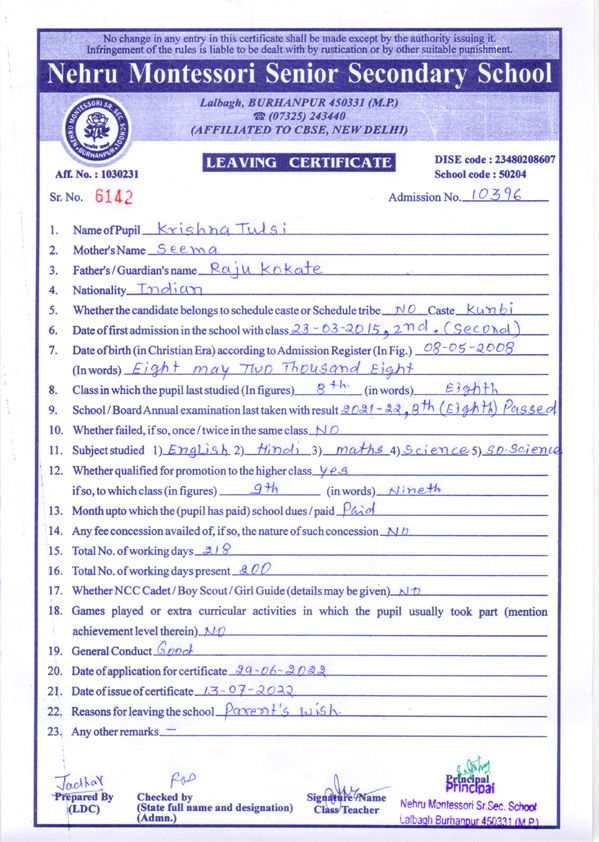 No change in any entry in this certificate shall be made except by the authority issuing it.
Infringement of the rules is liable to be dealt with by rustication or by other suitable punishment.
Nehru Montessori Senior Secondary School
Lalbagh, BURHANPUR 450331 (M.P.)
☎ (07325) 243440
(AFFILIATED TO CBSE, NEW DELHI)
NEHRU MONTESSORI SR. SEC. SCHOOL
BURHANPUR
LEAVING CERTIFICATE
DISE code : 23480208607
Aff. No. : 1030231 School code : 50204
Sr. No. 6142 Admission No. 10396
1. Name of Pupil Krishna Tulsi
2. Mother's Name Seema
3. Father's / Guardian's name Raju Kokate
4. Nationality Indian
5. Whether the candidate belongs to schedule caste or Schedule tribe NO Caste Kunbi
6. Date of first admission in the school with class 23-03-2015, 2nd. (Second)
7. Date of birth (in Christian Era) according to Admission Register (In Fig.) 08-05-2008
(In words) Eight may Two Thousand Eight
8. Class in which the pupil last studied (In figures) 8th. (in words) Eighth
9. School / Board Annual examination last taken with result 2021-22, 8th (Eighth) Passed
10. Whether failed, if so, once / twice in the same class NO
11. Subject studied 1) English 2) Hindi 3) maths 4) Science 5) SO-Science
12. Whether qualified for promotion to the higher class yes
if so, to which class (in figures) 9th (in words) Nineth
13. Month upto which the (pupil has paid) school dues / paid Paid
14. Any fee concession availed of, if so, the nature of such concession NO
15. Total No. of working days 218
16. Total No. of working days present 200
17. Whether NCC Cadet / Boy Scout / Girl Guide (details may be given) NO
18. Games played or extra curricular activities in which the pupil usually took part (mention
achievement level therein) NO
19. General Conduct Good
20. Date of application for certificate 29-06-2022
21. Date of issue of certificate 13-07-2022
22. Reasons for leaving the school Parent's wish.
23. Any other remarks —
Jadhav
Prepared By
(LDC)
Checked by
(State full name and designation)
(Admn.)
Signature/Name
Class Teacher
Principal
Principal
Nehru Montessori Sr.Sec. School
Lalbagh Burhanpur 450331 (M.P.)